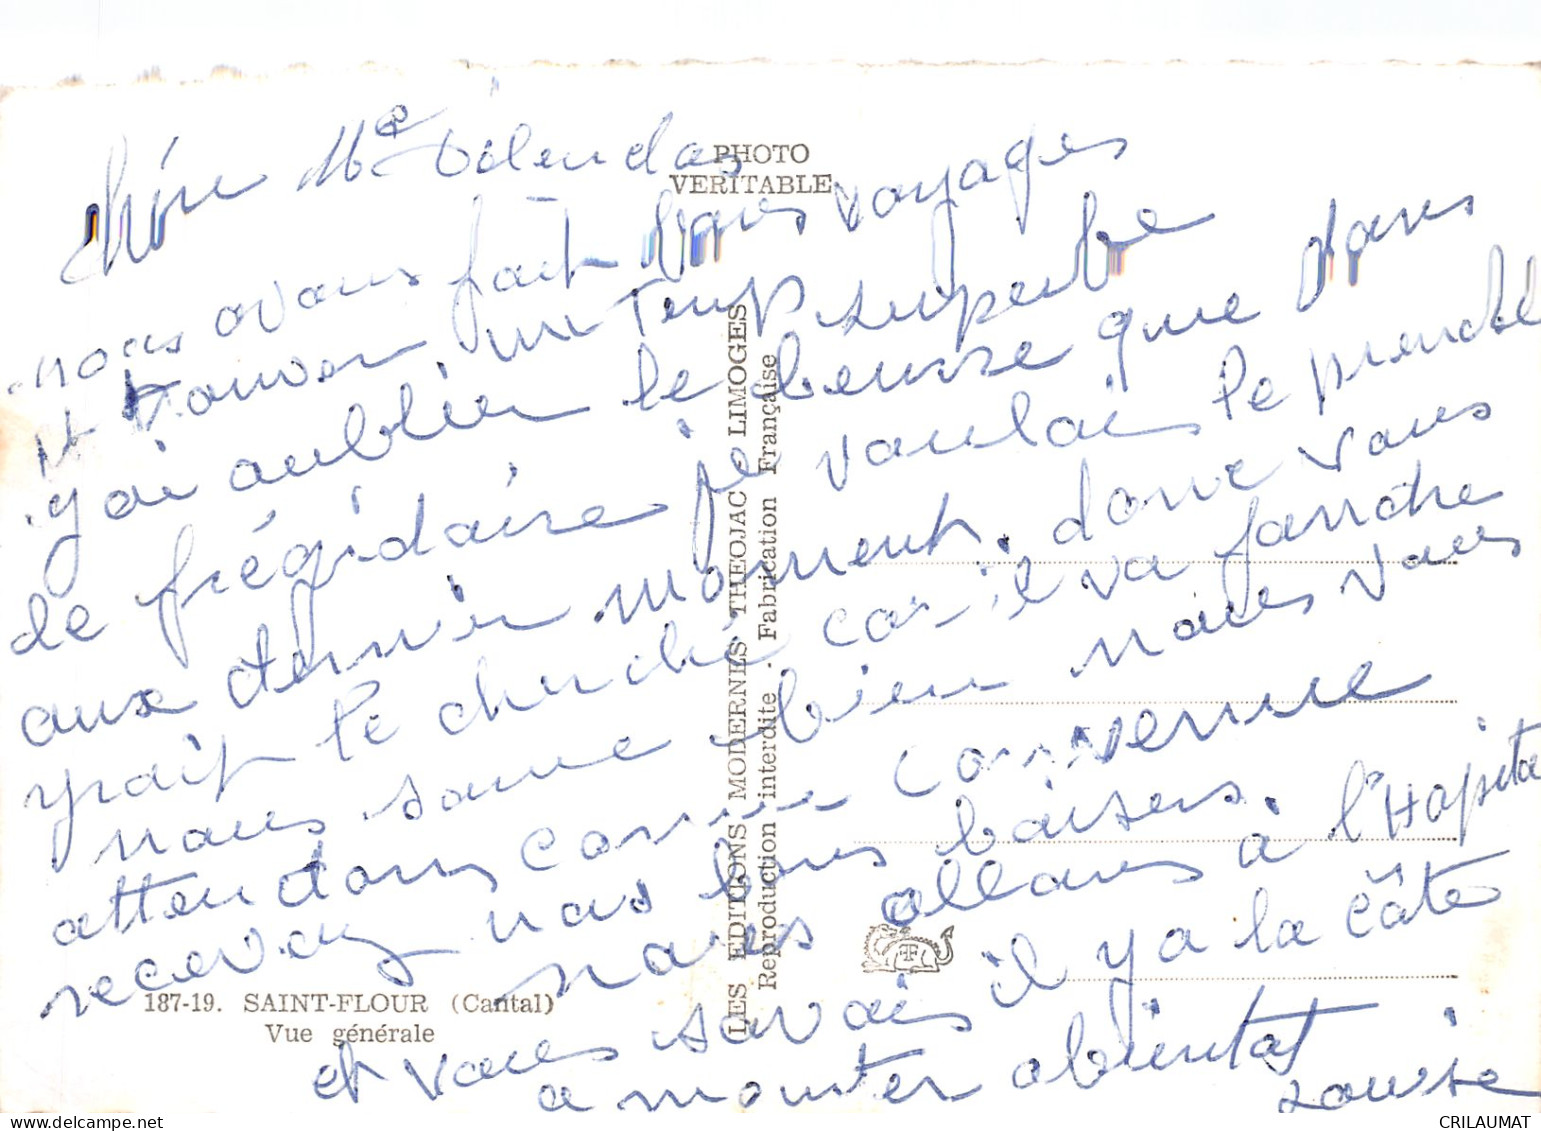 chère Me
nous avons fait bons voyages
et trouver un temps superbe
j'ai aublier le beurre que dans
le frégidaire je voulais le prendre
aux dernier moment. donc vous
yrait le cherché car il va fondre
nous some bien nous vous
attendons comme convenue
recevez nos bons baisers.
nous allons à l'Hopital
et vous savais il y a la côte
a monter abientat
Louise
PHOTO
VERITABLE
LES EDITIONS MODERNES THEOJAC LIMOGES
Reproduction interdite - Fabrication Française
187-19. SAINT-FLOUR (Cantal)
Vue générale
CRILAUMAT